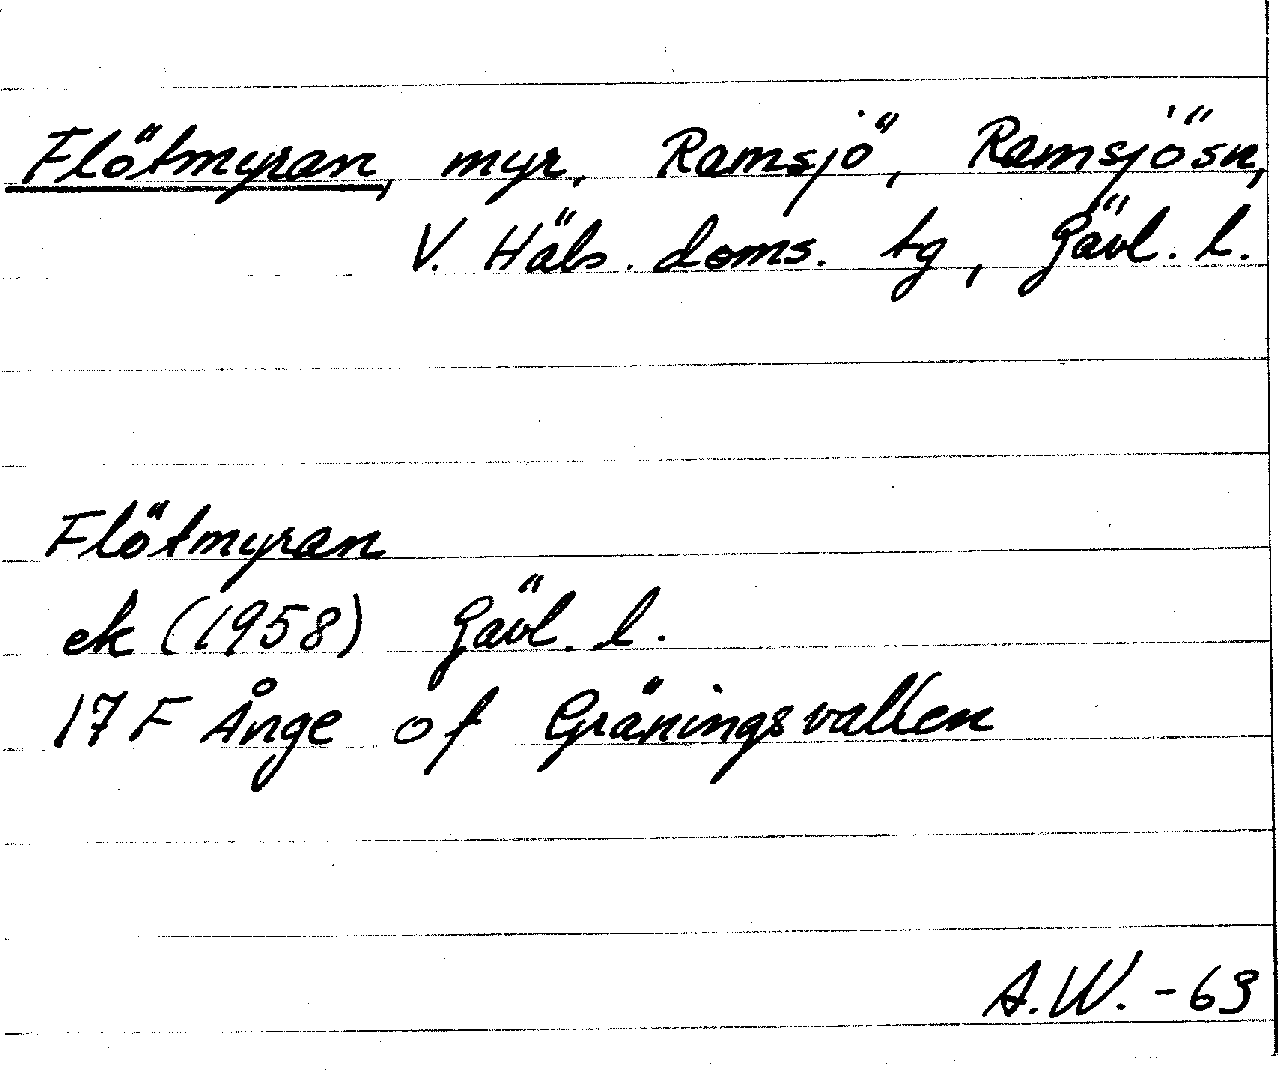 Flötmyran, myr, Ramsjö, Ramsjösn,
V. Häls. doms. tg, Gävl. l.
Flötmyran
ek (1958) Gävl. l.
17 F Ånge of Gräningsvallen
A.W. - 63